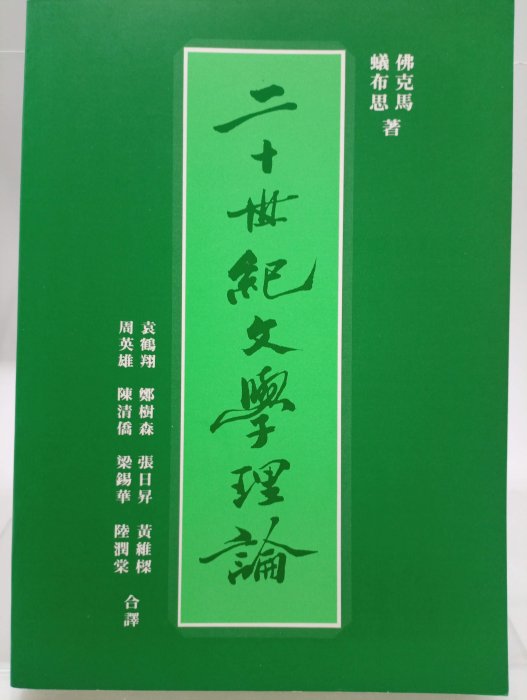 佛克馬
蟻布思 著
二十世紀文學理論
袁鶴翔 鄭樹森 張日昇 黃維樑
周英雄 陳清僑 梁錫華 陸潤棠 合譯